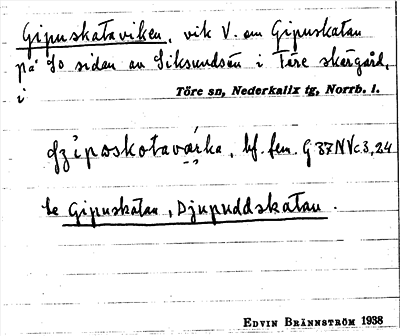 Gipuskataviken, vik V. om Gipuskatan
på So sidan av Siksundsön i Töre skärgård,
i
Töre sn, Nederkalix tg, Norrb. l.
bf. fem. G 37 N Vc3,24
Se Gipuskatan, Djupuddskatan.
EDVIN BRÄNNSTRÖM 1938